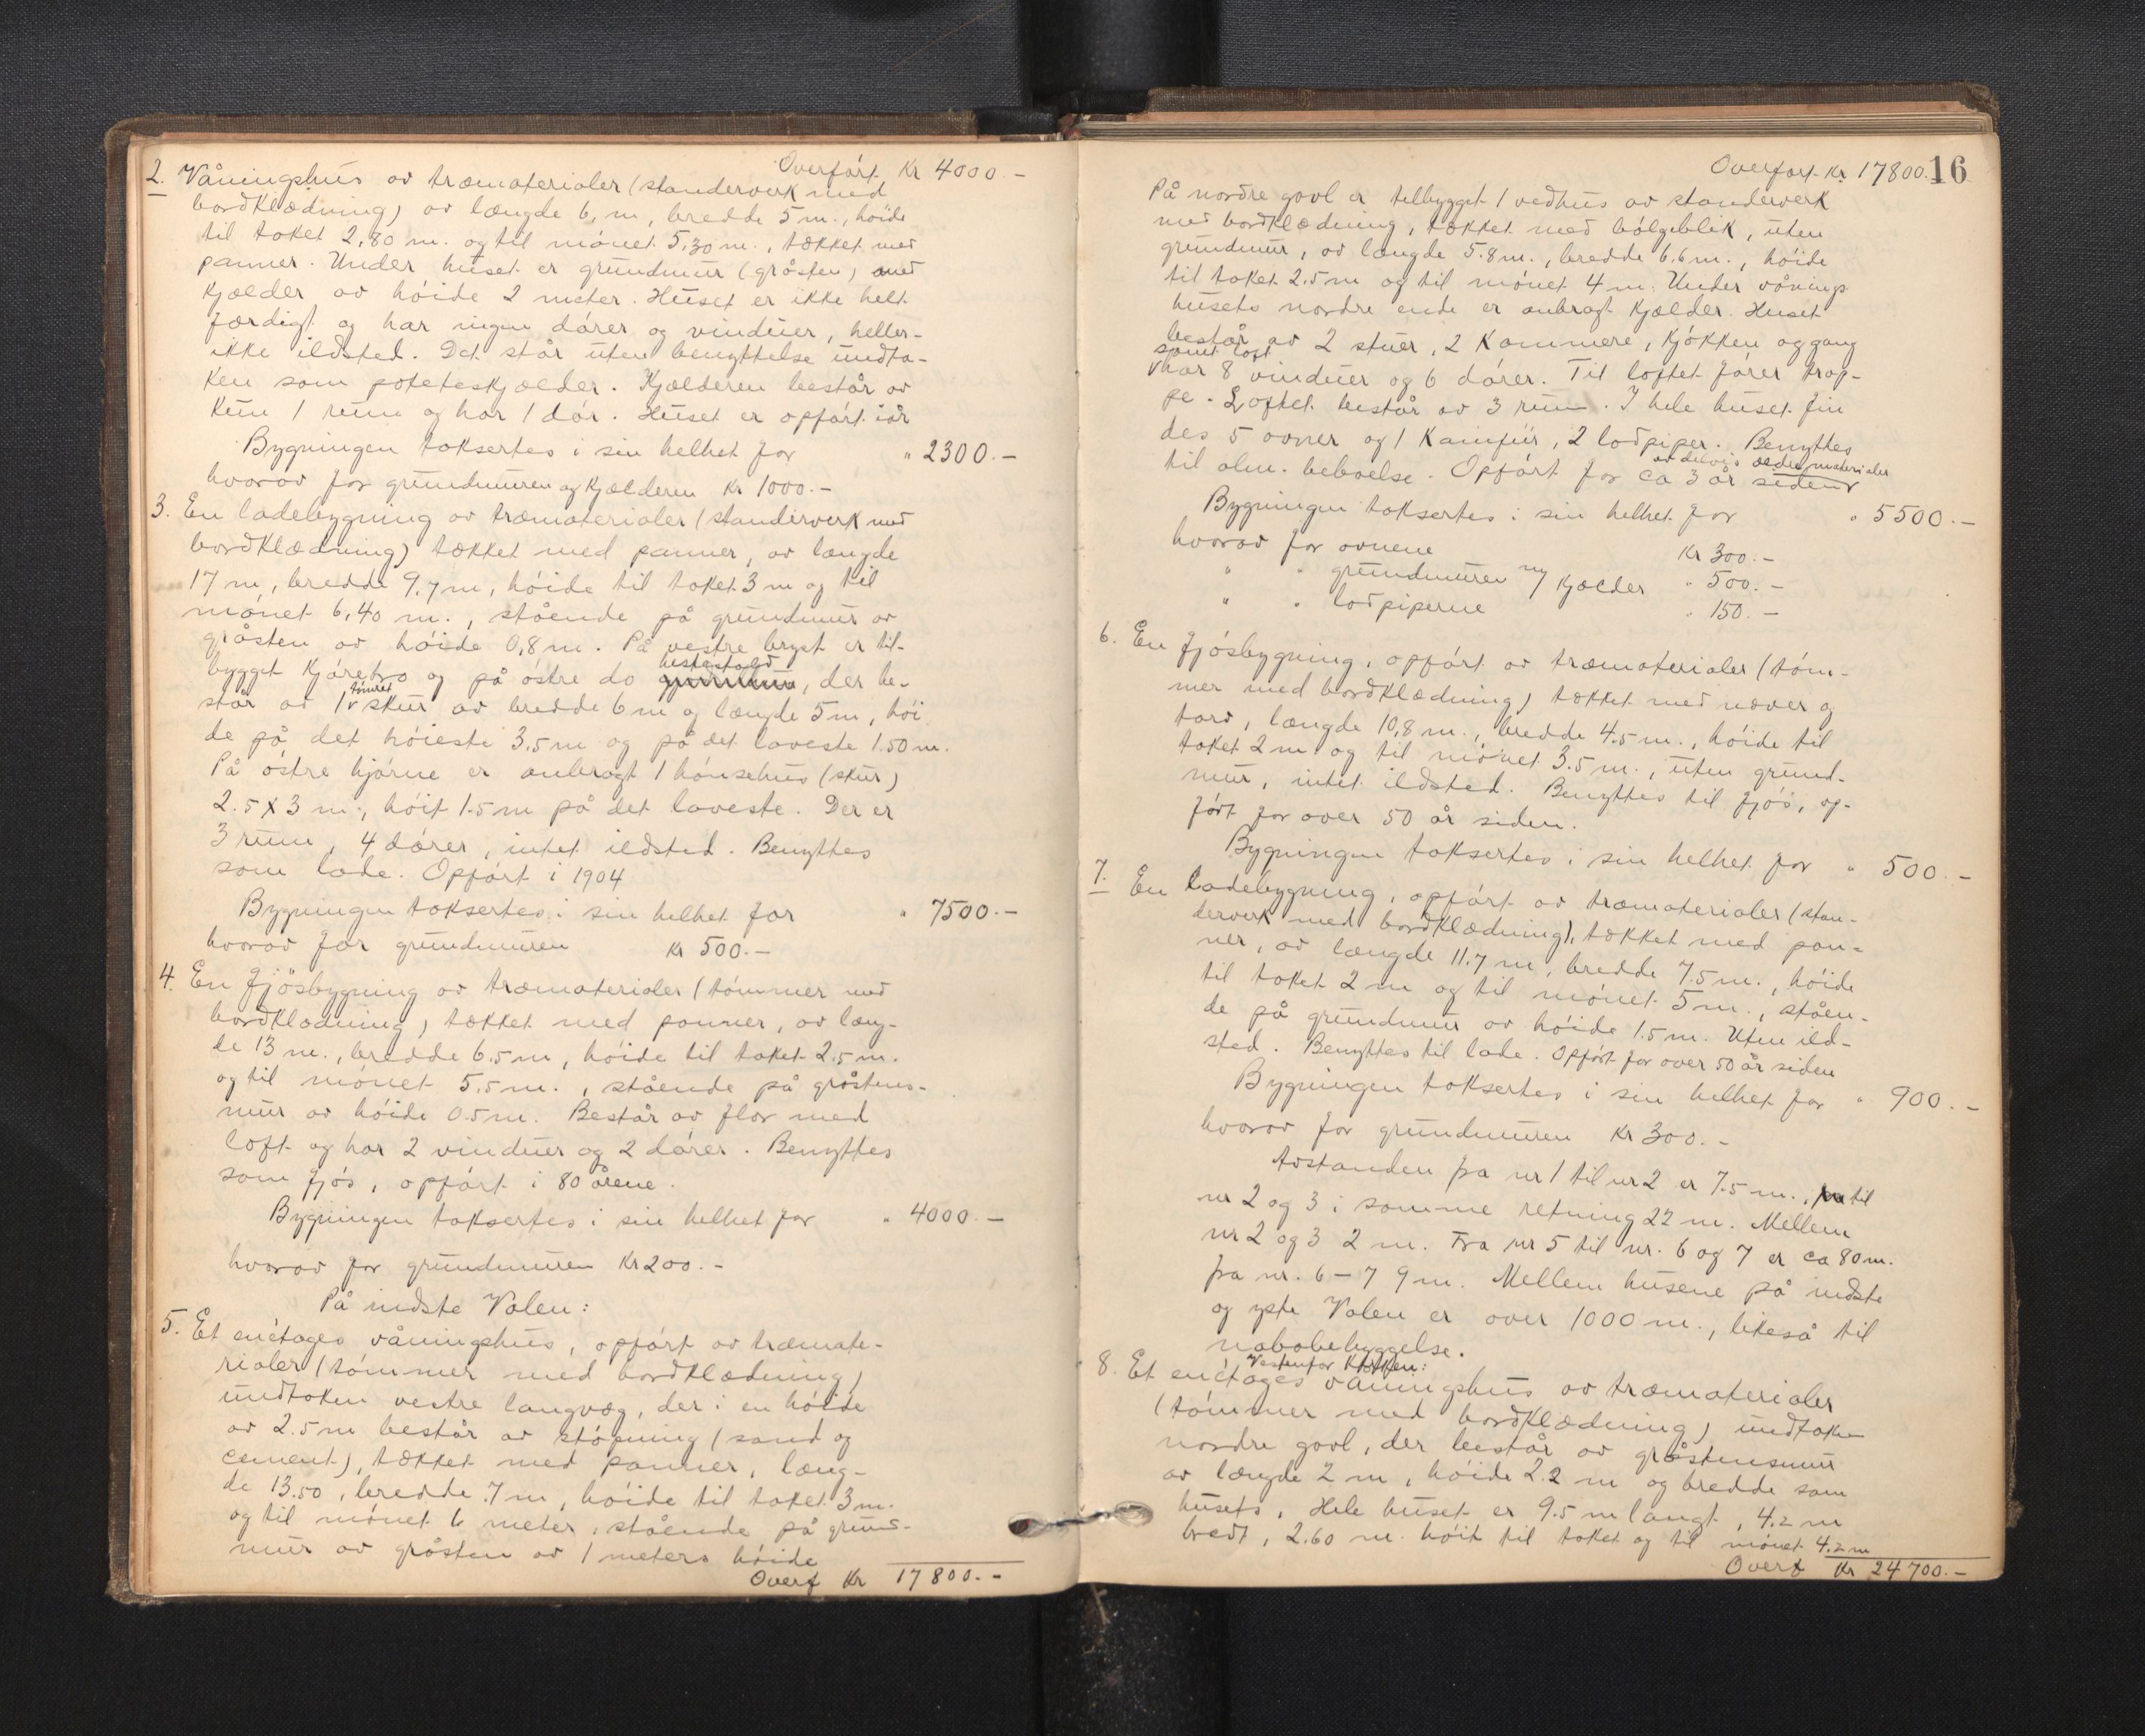 Overført Kr 4000.-
2. Våningshus av træmaterialer (standerverk med
bordklædning) av længde 6,m, bredde 5 m., höide
til taket 2,80 m. og til mönet 5,30 m., tækket med
panner. Under huset er grundmur (gråsten) med
kjælder av höide 2 meter. Huset er ikke helt
færdigt og har ingen dörer og vinduer, heller-
ikke ildsted. Det står uten benyttelse undta-
ken som poteteskjælder. Kjælderen består av
kun 1 rum og har 1 dör. Huset er opfört iår
Bygningen taksertes i sin helhet for " 2300.-
hvorav for grundmuren og kjælderen Kr 1000.-
3. En ladebygning av træmaterialer (standerverk med
bordklædning) tækket med panner, av længde
17 m, bredde 9,7 m, höide til taket 3 m og til
mönet 6,40 m., stående på grundmur av
gråsten av höide 0,8 m. På vestre bryst er til-
bygget kjörebro og på östre do hestestald, der be-
står av 1 tömret skur av bredde 6 m og længde 5 m, höi
de på det höieste 3,5 m og på det laveste 1.50 m.
På östre hjörne er anbragt 1 hönsehus (skur)
2.5 x 3 m., höit 1.5 m på det laveste. Der er
3 rum, 4 dörer, intet ildsted. Benyttes
som lade. Opfört i 1904
Bygningen taksertes i sin helhet for " 7500.-
hvorav for grundmuren Kr 500.-
4. En fjösbygning av træmaterialer (tömmer med
bordklædning) tækket med panner, av læng-
de 13 m., bredde 6.5 m, höide til taket 2.5 m.
og til mönet 5.5 m., stående på gråstens-
mur av höide 0.5 m. Består av flor med
loft og har 2 vinduer og 2 dörer. Benyttes
som fjös, opfört i 80 årene.
Bygningen taksertes i sin helhet for " 4000.-
hvorav for grundmuren Kr 200.-
På indste Valen:
5. Et enétages våningshus, opfört av træmate-
rialer (tömmer med bordklædning)
undtaken vestre langvæg, der i en höide
av 2.5 m består av stöpning (sand og
cement), tækket med panner, læng-
de 13.50, bredde 7 m, höide til taket 3 m.
og til mönet 6 meter, stående på grund-
mur av gråsten av 1 meters höide
Overf Kr 17800.-
Overført Kr 17800. 16
På nordre gavl er tilbygget 1 vedhus av standerverk
med bordklædning, tækket med bölgeblik, uten
grundmur, av længde 5.8 m., bredde 6.6 m., höide
til taket 2.5 m og til mönet 4 m. Under vånings
husets nordre ende er anbragt kjælder. Huset
består av 2 stuer, 2 kammere, kjökken og gang
samt loft
har 8 vinduer og 6 dörer. Til loftet förer trap-
pe. Loftet består av 3 rum. I hele huset fin
des 5 ovner og 1 kamfür, 2 lodpiper. Benyttes
til alm. beboelse. Opfört for ca 3 år siden
av delvis ældre materialer
Bygningen taksertes i sin helhet for " 5500.-
hvorav for ovnene Kr 300.-
" " grundmuren m/ kjælder " 500.-
" " lodpiperne " 150.-
6. En fjösbygning, opfört av træmaterialer (töm-
mer med bordklædning) tækket med næver og
torv, længde 10,8 m., bredde 4.5 m., höide til
taket 2 m og til mönet 3.5 m., uten grund-
mur, intet ildsted. Benyttes til fjös, op-
fört for over 50 år siden.
Bygningen taksertes i sin helhet for " 500.-
7. En ladebygning, opfört av træmaterialer (stan-
derverk med bordklædning), tækket med pan-
ner, av længde 11.7 m, bredde 7.5 m., höide
til taket 2 m og til mönet 5 m., ståen-
de på grundmur av höide 1.5 m. Uten ild-
sted. Benyttes til lade. Opfört for over 50 år siden
Bygningen taksertes i sin helhet for " 900.-
hvorav for grundmuren Kr 300.-
Avstanden fra nr 1 til nr 2 er 7.5 m., til
nr 2 og 3 i samme retning 22 m. Mellem
nr 2 og 3 2 m. Fra nr 5 til nr. 6 og 7 er ca 80 m.
fra nr. 6 - 7 9 m. Mellem husene på indste
og yste Valen er over 1000 m., likeså til
nabobebyggelse.
Vestenfor
8. Et enétages våningshus av træmaterialer
(tömmer med bordklædning) undtaken
nordre gavl, der består av gråstensmur
av længde 2 m, höide 2.2 m og bredde som
husets. Hele huset er 9.5 m langt, 4.2 m
bredt, 2.60 m. höit til taket og til mönet 4.2 m
Overf Kr 24700.-